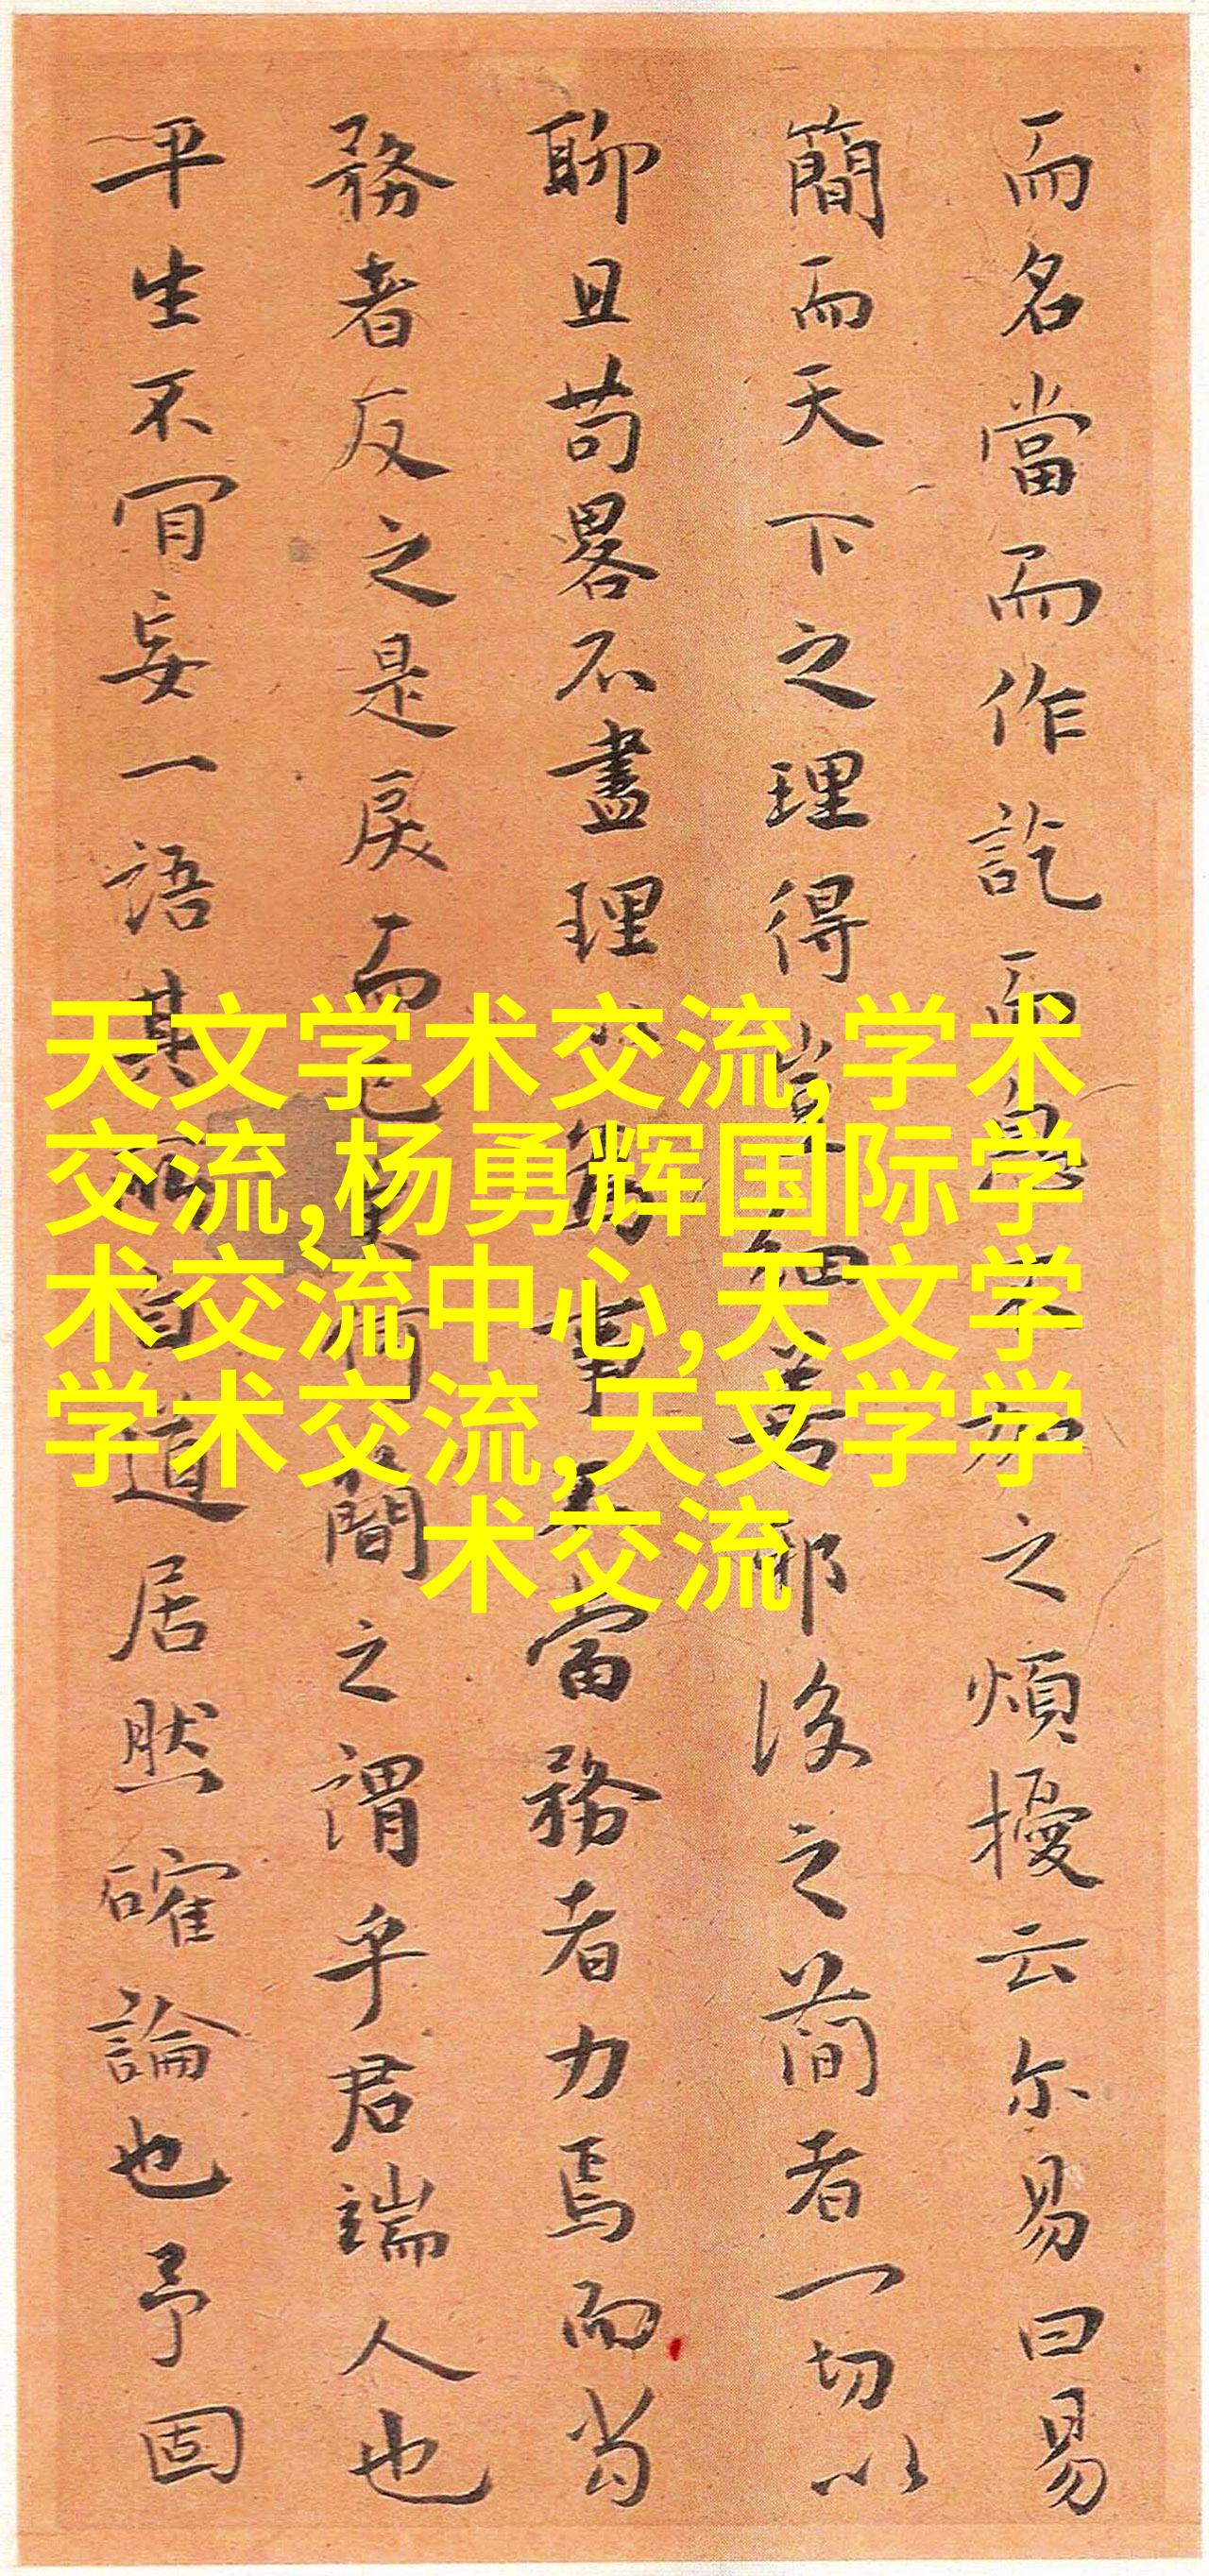 而名當而作訖而不加之煩擾云尔易曰易
簡而天下之理得豈細善耶後之简者一切以
聊且苟畧不盡理為事不當務者力焉而當
務者反之是戾而已矣何簡之謂乎君端人也
平生不肎妄一語其所自道居然確論也予固
天文学术交流,学术
交流,杨勇辉国际学
术交流中心,天文学
学术交流,天文学学
术交流